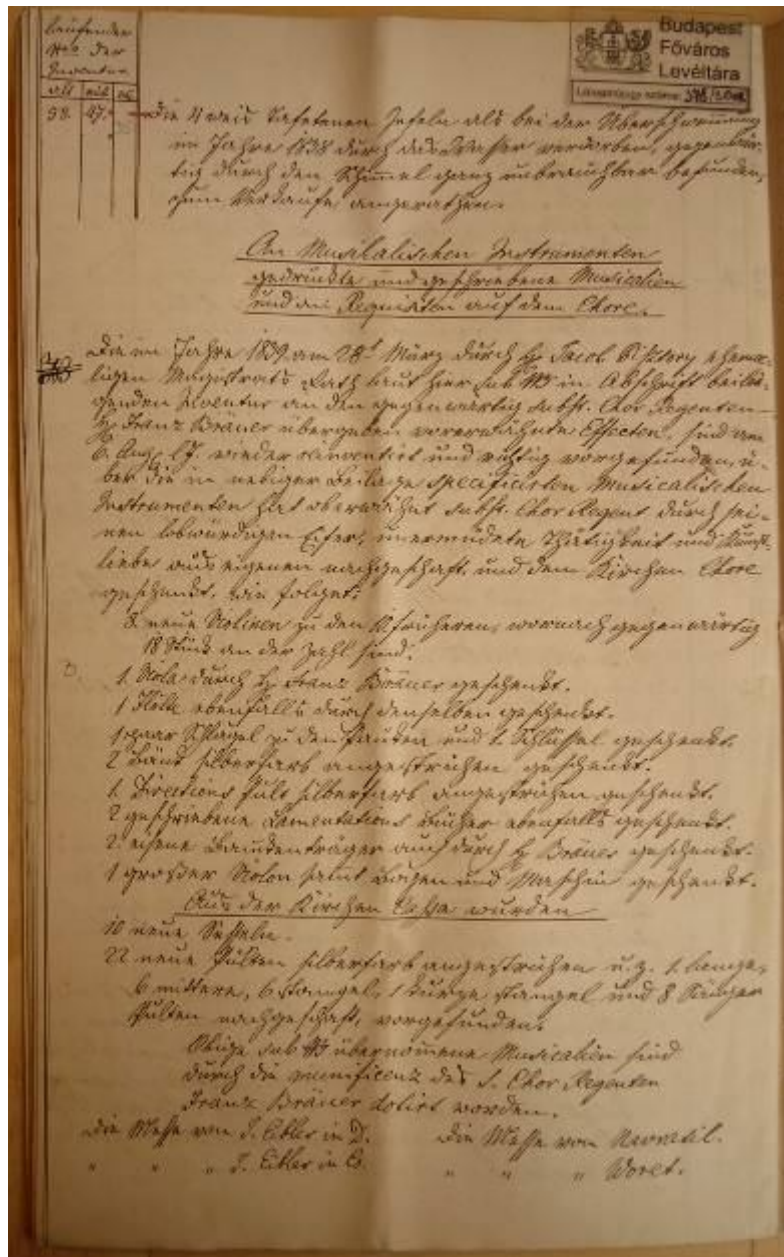 laufender
Nro der
Inventur
alt neü
98. 47.
Budapest
Főváros
Levéltára
Die 4 weis Tafetenen Fefeln als bei der Überschwemmung
im Jahre 1838 durch das Wasser verdorben, gegenwär-
tig durch den Schimel ganz unbrauchbar befunden,
zum Verkaufe angerathen.
An Musikalischen Instrumenten
gedruckte und geschriebene Musicalien
und an Requisiten auf dem Chore.
Die im Jahre 1839 am 28t März durch H. Jacob ehema-
ligen Magistrats Rath laut hier sub in Abschrift beilie-
genden Inventur an den gegenwärtig subst. Chor Regenten
H. Franz Bräuer übergeben vorerwähnte Effecten, sind am
6. Aug. l. J. wieder und richtig vorgefunden, ü-
ber die in nebiger Beilage specificirten Musicalischen
Instrumenten hat oberwähnt subst. Chor Regent durch sei-
nen lobwürdigen Eifer, unermüdete Thätigkeit und Kunst-
liebe aus eigenen nachgeschaft, und dem Kirchen Chore
geschenkt, wie folget:
8. neue Violinen zu den 10 früheren, wornach gegenwärtig
18 Stück an der Zahl sind.
1. Viola durch H. Franz Bräuer geschenkt.
1 Flöte ebenfalls durch denselben geschenkt.
1 paar Schlägel zu den Pauken und 1. Schlüssel geschenkt.
2 Bänk silberfarb angestrichen geschenkt.
1. Directions Pult silberfarb angestrichen geschenkt.
2 geschriebene Lamentations Bücher ebenfalls geschenkt.
2. eiserne auch durch H. Bräuer geschenkt.
1 großer Violon samt Bogen und Maschin geschenkt.
Aus der Kirchen Cassa wurden
10 neue Sesseln.
22 neue Pulten silberfarb angestrichen u. z. 1. lange,
6 mittere, 6 Stangel, 1 kurze Stangel und 8 Sänger
Pulten nachgeschaft, vorgefunden.
Obige sub übernomene Musicalien sind
durch die munificenz des s. Chor Regenten
Franz Bräuer dotirt worden.
Die Messe von J. Eibler in D. Die Messe von Navratil.
" " " J. Eibler in Es. " " " Woret.